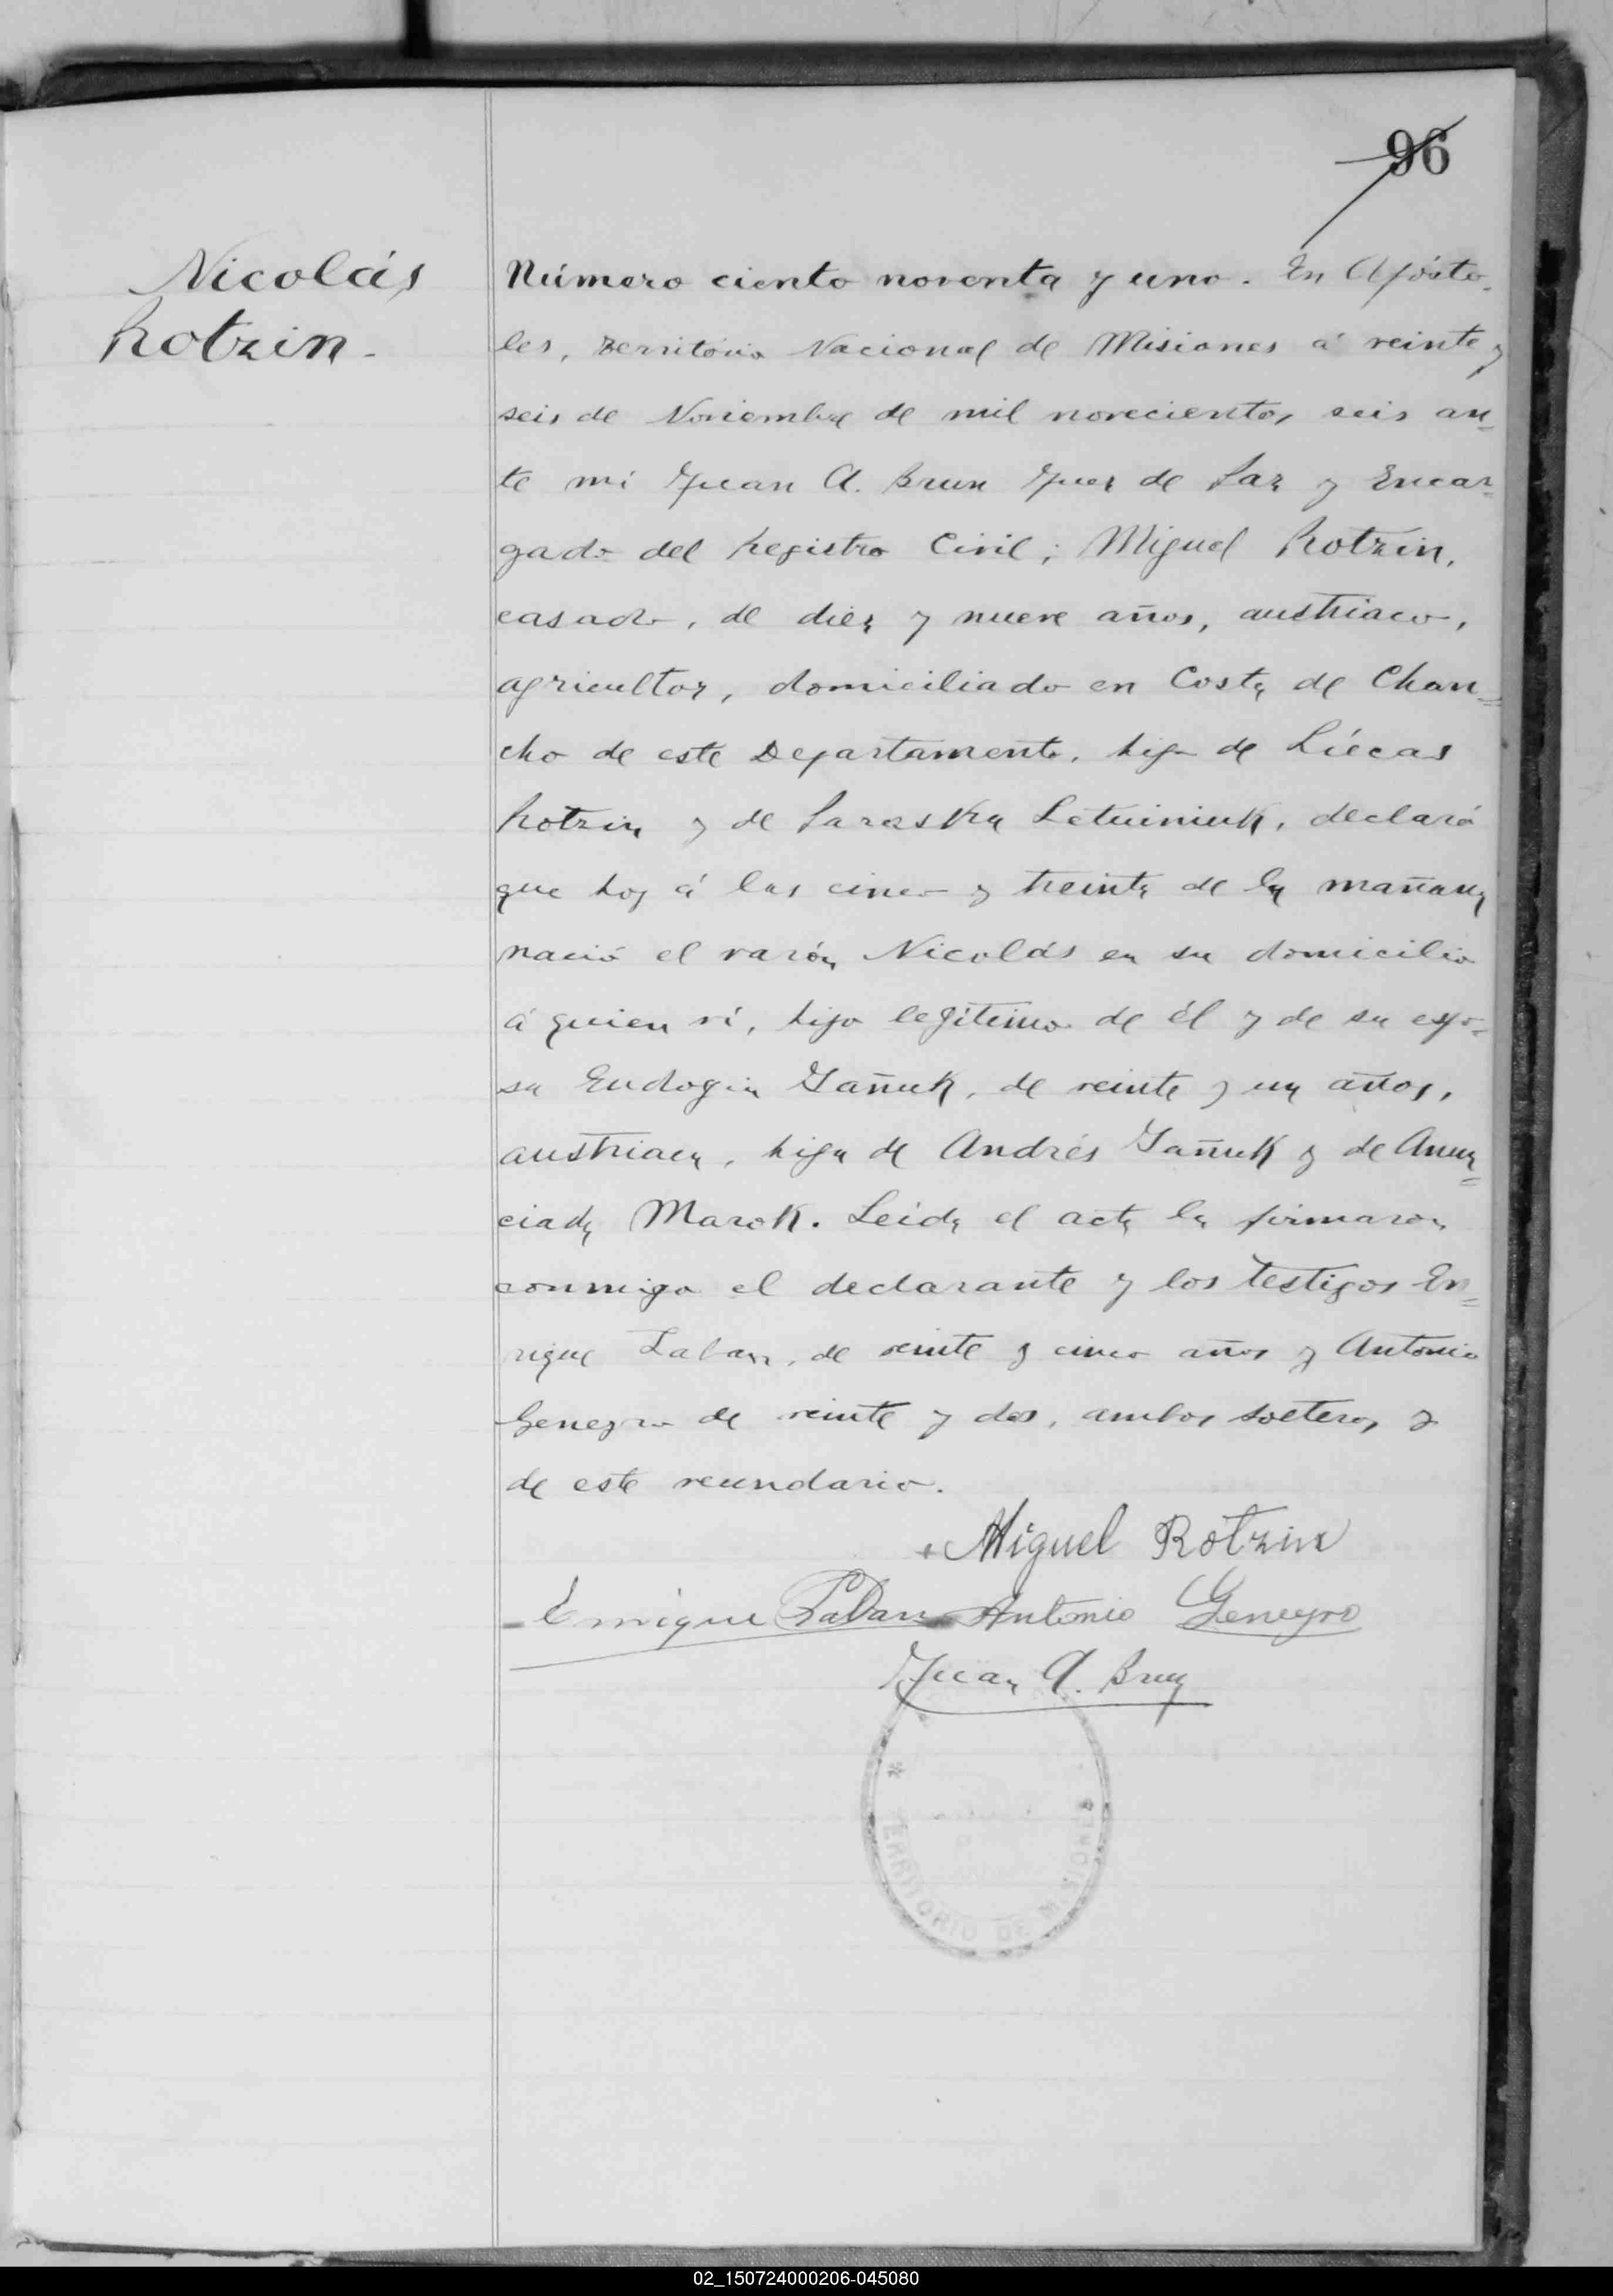 96
Nicolás
Rotzin.
Número ciento noventa y uno. En Apósto-
les, Territorio Nacional de Misiones á veinte y
seis de Noviembre de mil novecientos seis an=
te mi Juan A. Brun Juez de Paz y Encar=
gado del Registro Civil; Miguel Rotzin,
casado, de diez y nueve años, austriaco,
agricultor, domiciliado en Costa de Chan=
cho de este Departamento, hijo de Lúcas
Rotzin y de Paraska Letuiniuk, declaró
que hoy á las cinco y treinta de la mañana
nació el varón Nicolás en su domicilio
á quien ví, hijo legítimo de él y de su espo=
sa Eudogia Gañuk, de veinte y un años,
austriaca, hija de Andrés Gañuk y de Anun=
ciada Marok. Leida el acta la firmaron
conmigo el declarante y los testigos En=
rique de veinte y cinco años y Antonio
Geneyro de veinte y dos, ambos solteros y
de este vecindario.
Miguel Rotzin
Enrique Antonio Geneyro
Juan A. Brun
TERRITORIO DE MISIONES
02_150724000206-045080